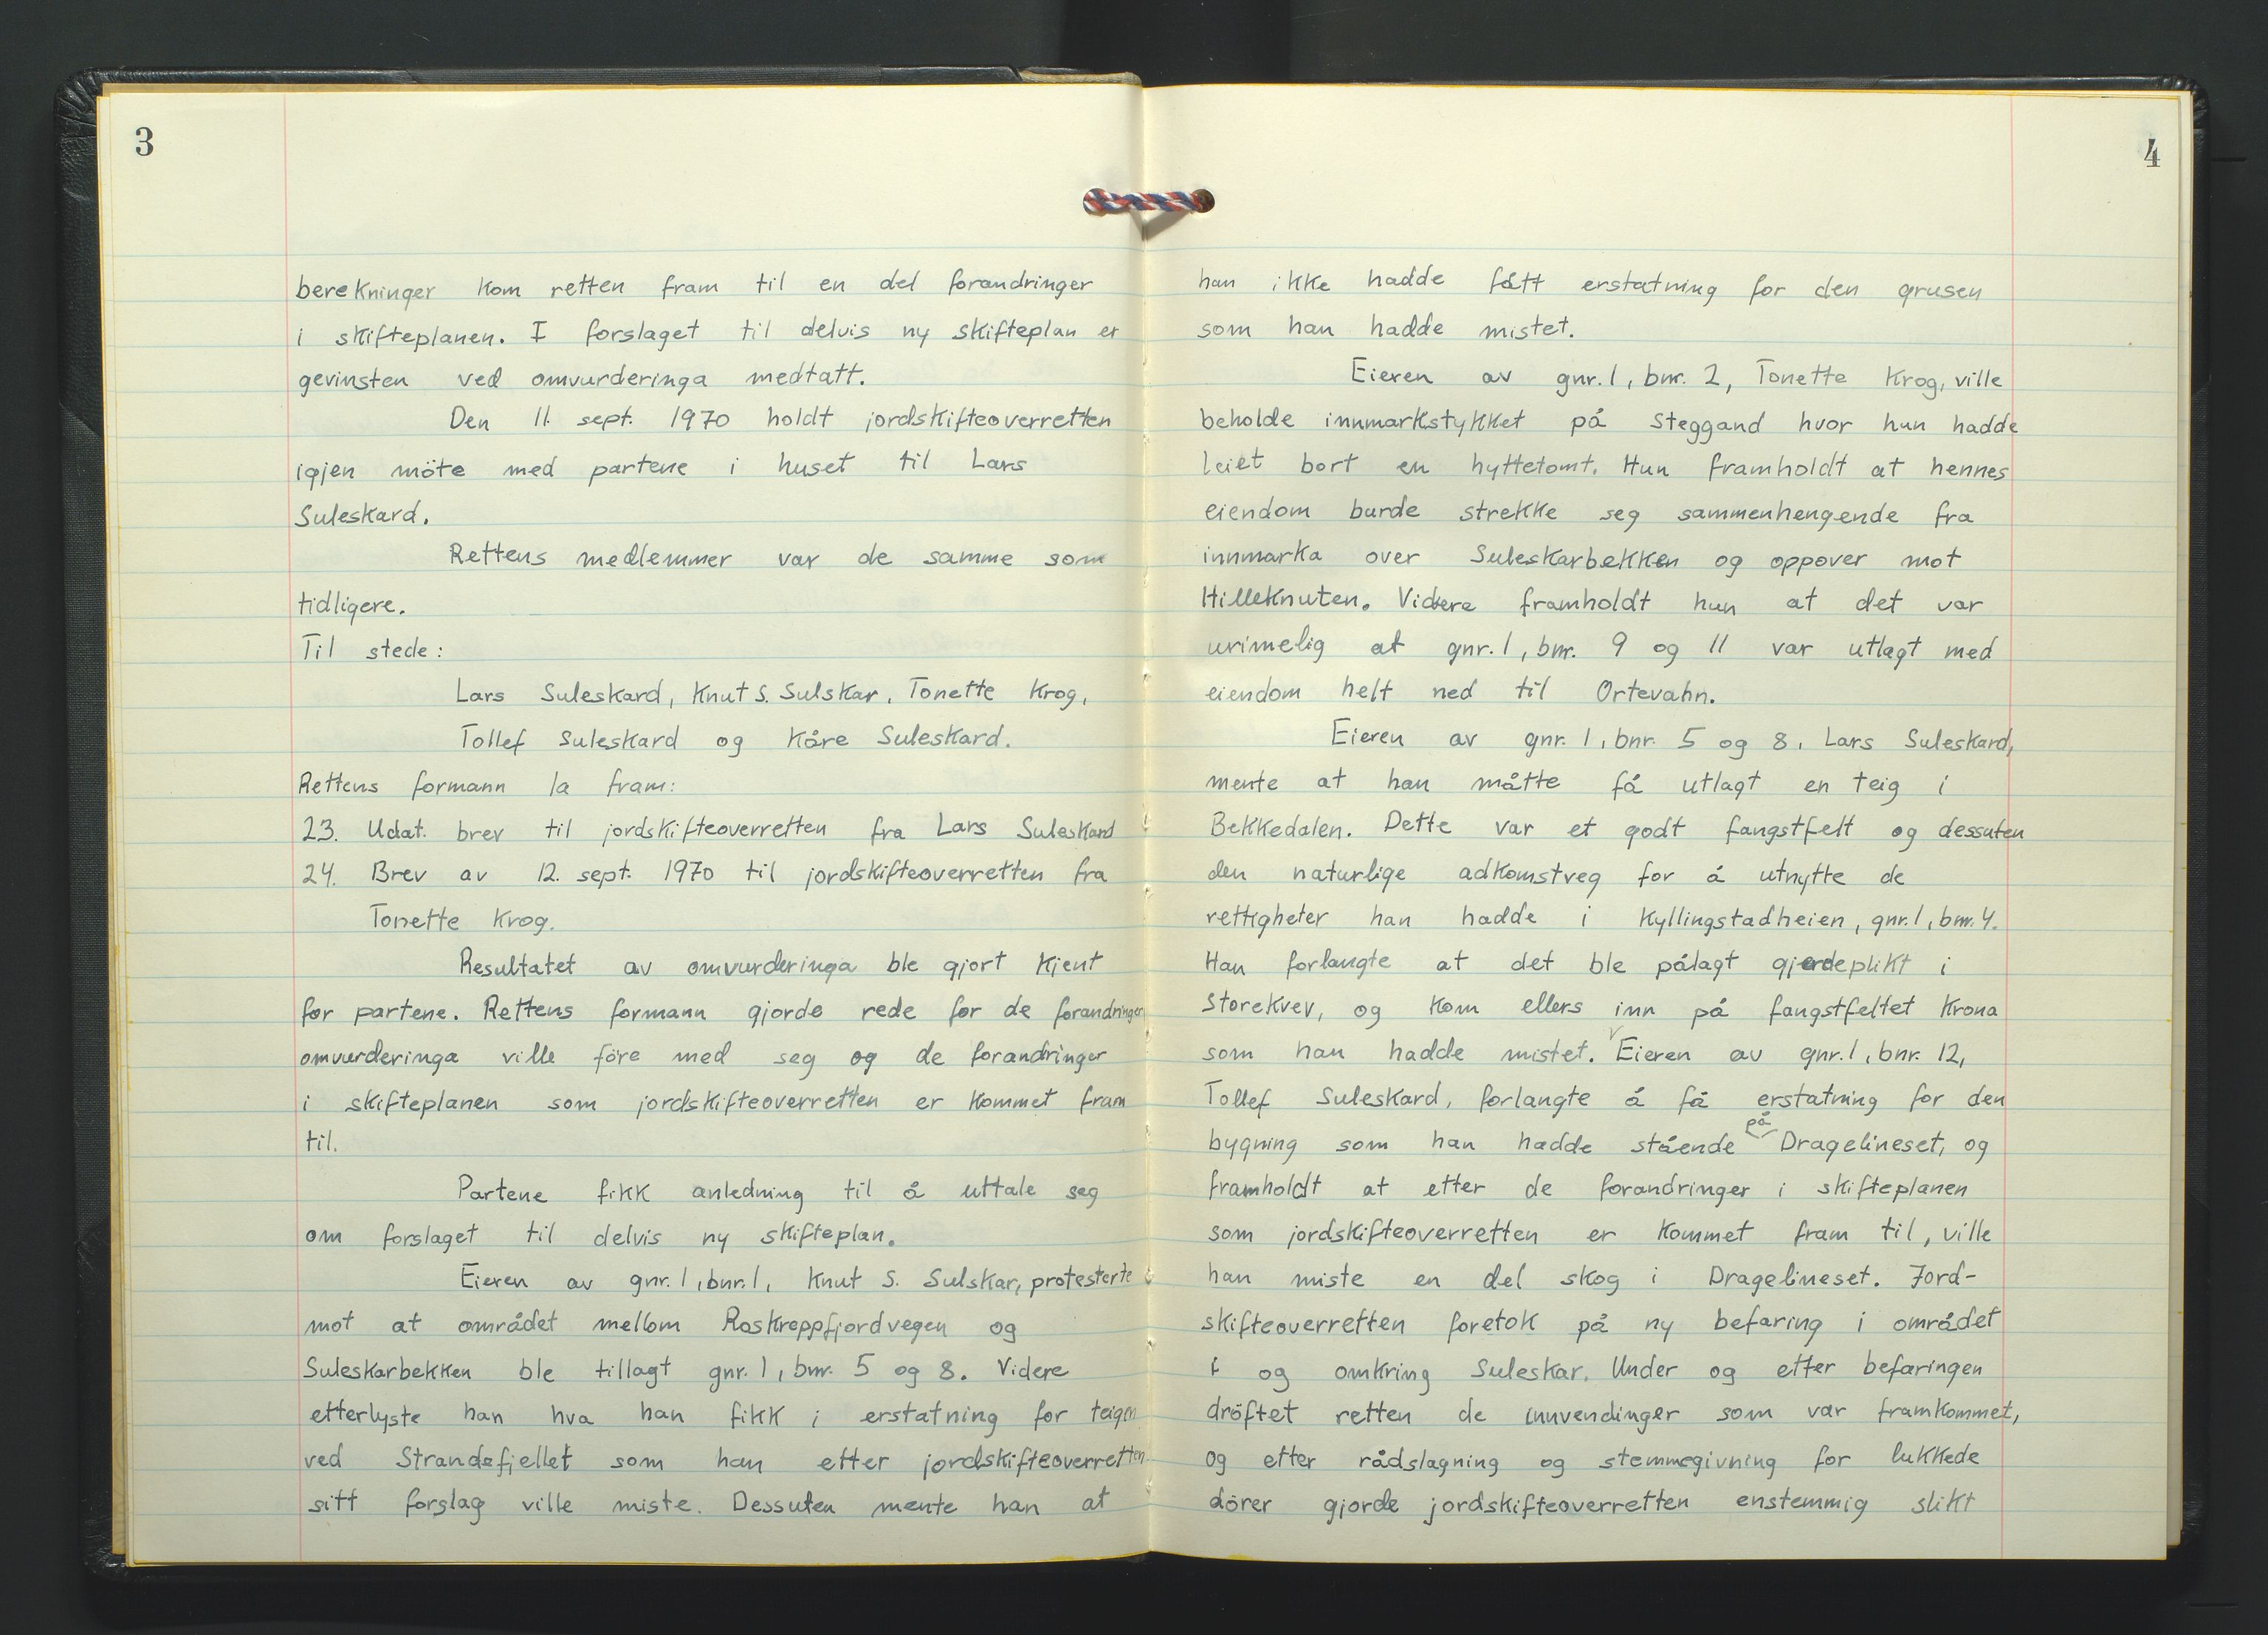 3
berekninger kom retten fram til en del forandringer
i skifteplanen. I forslaget til delvis ny skifteplan er
gevinsten ved omvurderinga medtatt.
Den 11. sept. 1970 holdt jordskifteoverretten
igjen möte med partene i huset til Lars
Suleskard.
Rettens medlemmer var de samme som
tidligere.
Til stede:
Lars Suleskard, Knut S. Sulskar, Tonette Krog,
Tollef Suleskard og Kåre Suleskard.
Rettens formann la fram:
23. Udat. brev til jordskifteoverretten fra Lars Suleskard
24. Brev av 12. sept. 1970 til jordskifteoverretten fra
Tonette Krog.
Resultatet av omvurderinga ble gjort kjent
for partene. Rettens formann gjorde rede for de forandringer
omvurderinga ville före med seg og de forandringer
i skifteplanen som jordskifteoverretten er kommet fram
til.
Partene fikk anledning til å uttale seg
om forslaget til delvis ny skifteplan.
Eieren av gnr. 1, bnr. 1, Knut S. Sulskar, protesterte
mot at området mellom Roskreppfjordvegen og
Suleskarbekken ble tillagt gnr. 1, bnr. 5 og 8. Videre
etterlyste han hva han fikk i erstatning for teigen
ved Strandefjellet som han etter jordskifteoverretten
sitt forslag ville miste. Dessuten mente han at
4
han ikke hadde fått erstatning for den grusen
som han hadde mistet.
Eieren av gnr. 1, bnr. 2, Tonette Krog, ville
beholde innmarkstykket på Steggand hvor hun hadde
leiet bort en hyttetomt. Hun framholdt at hennes
eiendom burde strekke seg sammenhengende fra
innmarka over Suleskarbekken og oppover mot
Hilleknuten. Videre framholdt hun at det var
urimelig at gnr. 1, bnr. 9 og 11 var utlagt med
eiendom helt ned til Ortevatn.
Eieren av gnr. 1, bnr. 5 og 8, Lars Suleskard,
mente at han måtte få utlagt en teig i
Bekkedalen. Dette var et godt fangstfelt og dessuten
den naturlige adkomstveg for å utnytte de
rettigheter han hadde i Kyllingstadheien, gnr. 1, bnr. 4.
Han forlangte at det ble pålagt gjerdeplikt i
Storekvev, og kom ellers inn på fangstfeltet Krona
som han hadde mistet. Eieren av gnr. 1, bnr. 12,
Tollef Suleskard, forlangte å få erstatning for den
bygning som han hadde stående på Dragelineset, og
framholdt at etter de forandringer i skifteplanen
som jordskifteoverretten er kommet fram til, ville
han miste en del skog i Dragelineset. Jord-
skifteoverretten foretok på ny befaring i området
i og omkring Suleskar. Under og etter befaringen
dröftet retten de innvendinger som var framkommet,
og etter rådslagning og stemmegivning for lukkede
dörer gjorde jordskifteoverretten enstemmig slikt